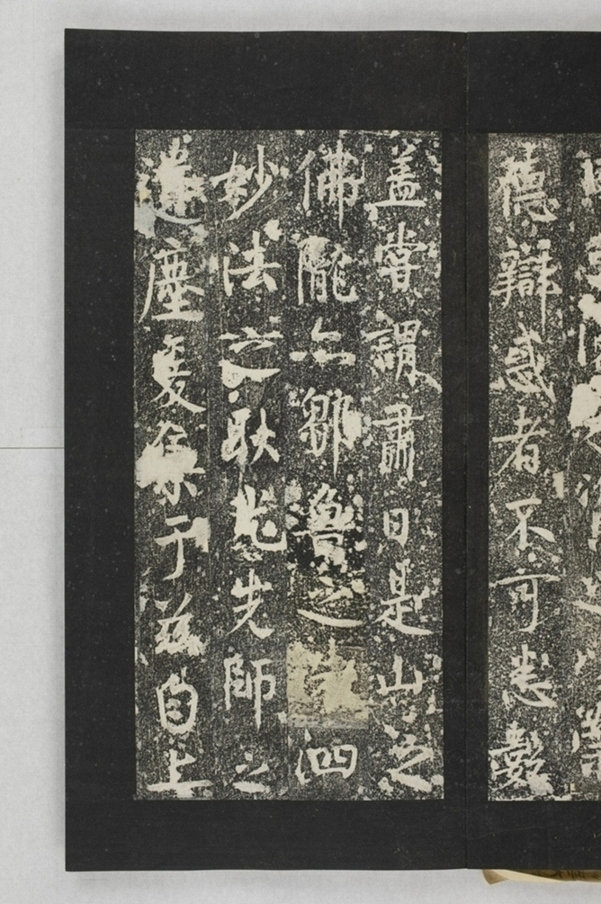 德辯惑者不可悉數
蓋嘗謂肅曰是山之
佛隴亦鄒魯之泗
妙法之耿光先師之
遺塵爰集于茲自上